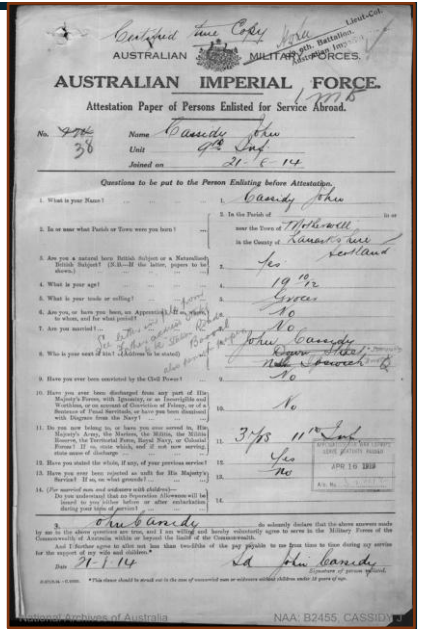 Certified true Copy
Lieut-Col.
9th. Battalion.
Australian Imperial
AUSTRALIAN MILITARY FORCES.
AUSTRALIAN IMPERIAL FORCE.
Attestation Paper of Persons Enlisted for Service Abroad.
No. 38 Name Cassidy John
Unit 9th Inf.
Joined on 21-8-14
Questions to be put to the Person Enlisting before Attestation.
1. What is your Name? 1. Cassidy John
2. In or near what Parish or Town were you born? 2. In the Parish of in or
near the Town of Motherwell
in the County of Lanarkshire
Scotland
3. Are you a natural born British Subject or a Naturalized
British Subject? (N.B.—If the latter, papers to be
shown.) 3. Yes
4. What is your age? 4. 19 10/12
5. What is your trade or calling? 5. Grocer
6. Are you, or have you been, an Apprentice? If so, where,
to whom, and for what period? 6. No
7. Are you married? 7. No
8. Who is your next of kin? (Address to be stated) 8. John Cassidy
Down Street
Nth Ipswich Q
See letter in
Booval
9. Have you ever been convicted by the Civil Power? 9. No
10. Have you ever been discharged from any part of His
Majesty's Forces, with Ignominy, or as Incorrigible and
Worthless, or on account of Conviction of Felony, or of a
Sentence of Penal Servitude, or have you been dismissed
with Disgrace from the Navy? 10. No
11. Do you now belong to, or have you ever served in, His
Majesty's Army, the Marines, the Militia, the Militia
Reserve, the Territorial Force, Royal Navy, or Colonial
Forces? If so, state which, and if not now serving,
state cause of discharge 11. 3 yrs 11th Inf
12. Have you stated the whole, if any, of your previous service? 12. Yes
13. Have you ever been rejected as unfit for His Majesty's
Service? If so, on what grounds? 13. No
APR 16
14. (For married men and widowers with children)—
Do you understand that no Separation Allowance will be
issued to you either before or after embarkation
during your term of service? 14.
John Cassidy do solemnly declare that the above answers made
by me to the above questions are true, and I am willing and hereby voluntarily agree to serve in the Military Forces of the
Commonwealth of Australia within or beyond the limits of the Commonwealth.
And I further agree to allot not less than two-fifths of the pay payable to me from time to time during my service
for the support of my wife and children.*
Date 21-8-14 Sd John Cassidy
Signature of person enlisted.
*This clause should be struck out in the case of unmarried men or widowers without children under 18 years of age.
National Archives of Australia NAA: B2455, CASSIDY J